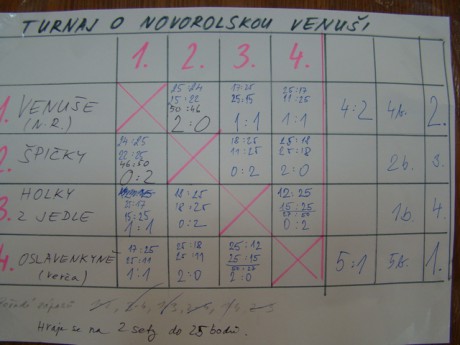 TURNAJ O NOVOROLSKOU VENUŠI
1. 2. 3. 4.
1. VENUŠE (N.R.) 25:22 50:46 2:0 17:25 25:15 1:1 25:17 11:25 1:1 4:2 4b. 2.
2. ŠPIČKY 24:25 22:25 46:50 0:2 18:25 11:25 0:2 25:18 25:18 2:0 2b. 3.
3. HOLKY Z JEDLE 15:25 1:1 11:25 18:25 0:2 12:25 15:25 0:2 1b. 4.
4. OSLAVENKYNĚ (Verča) 17:25 25:11 1:1 25:18 25:11 2:0 25:12 25:15 2:0 5:1 5b. 1.
Hraje se na 2 sety do 25 bodů.